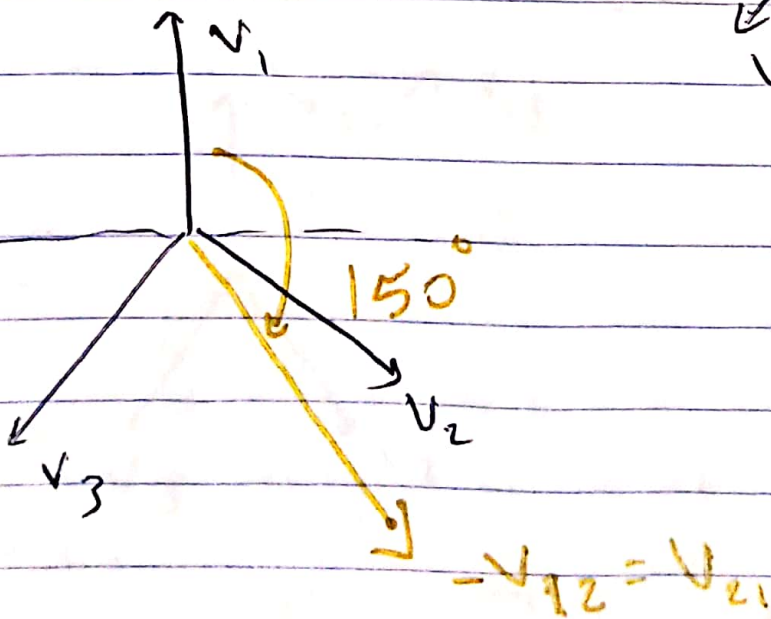 V₁
150°
V₂
V₃
-V₁₂ = V₂₁